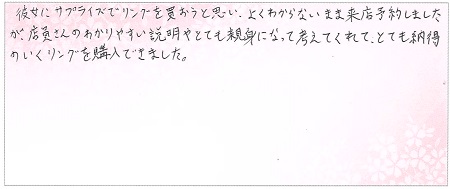 彼女にサプライズでリングを買おうと思い、よくわからないまま来店予約しました
が、店員さんのわかりやすい説明やとても親身になって考えてくれて、とても納得
のいくリングを購入できました。